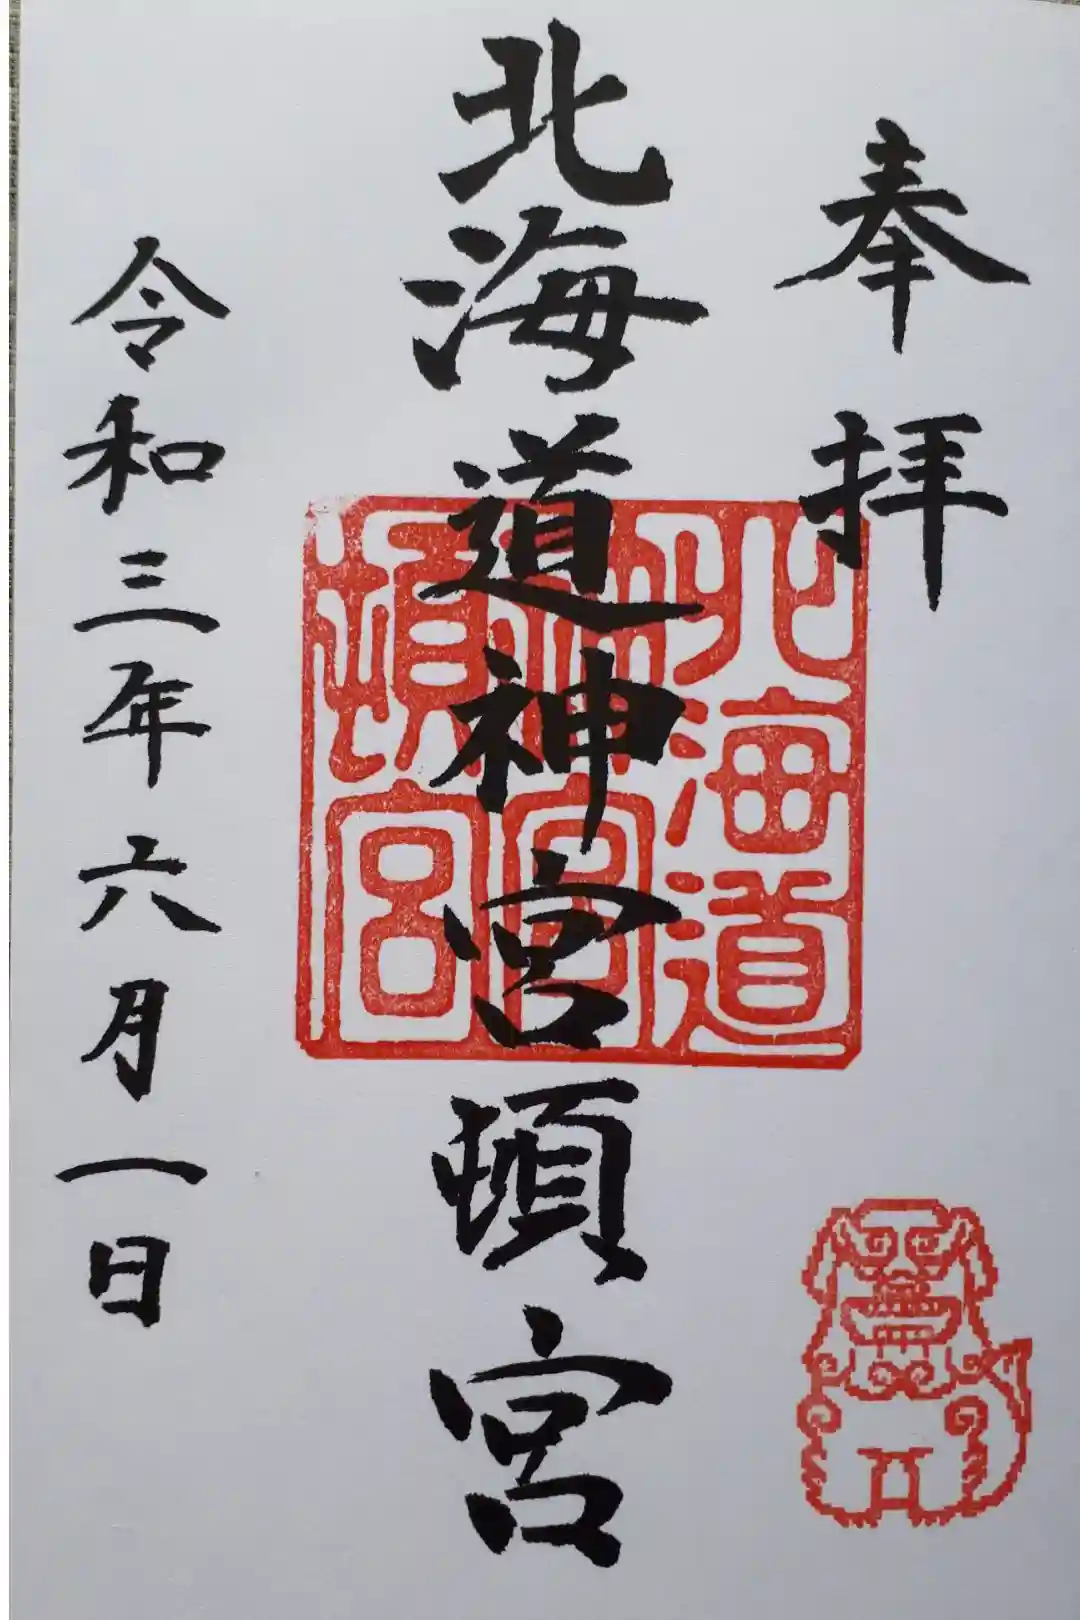 奉拝
北海道神宮頓宮
北海道
神宮
頓宮
令和三年六月一日